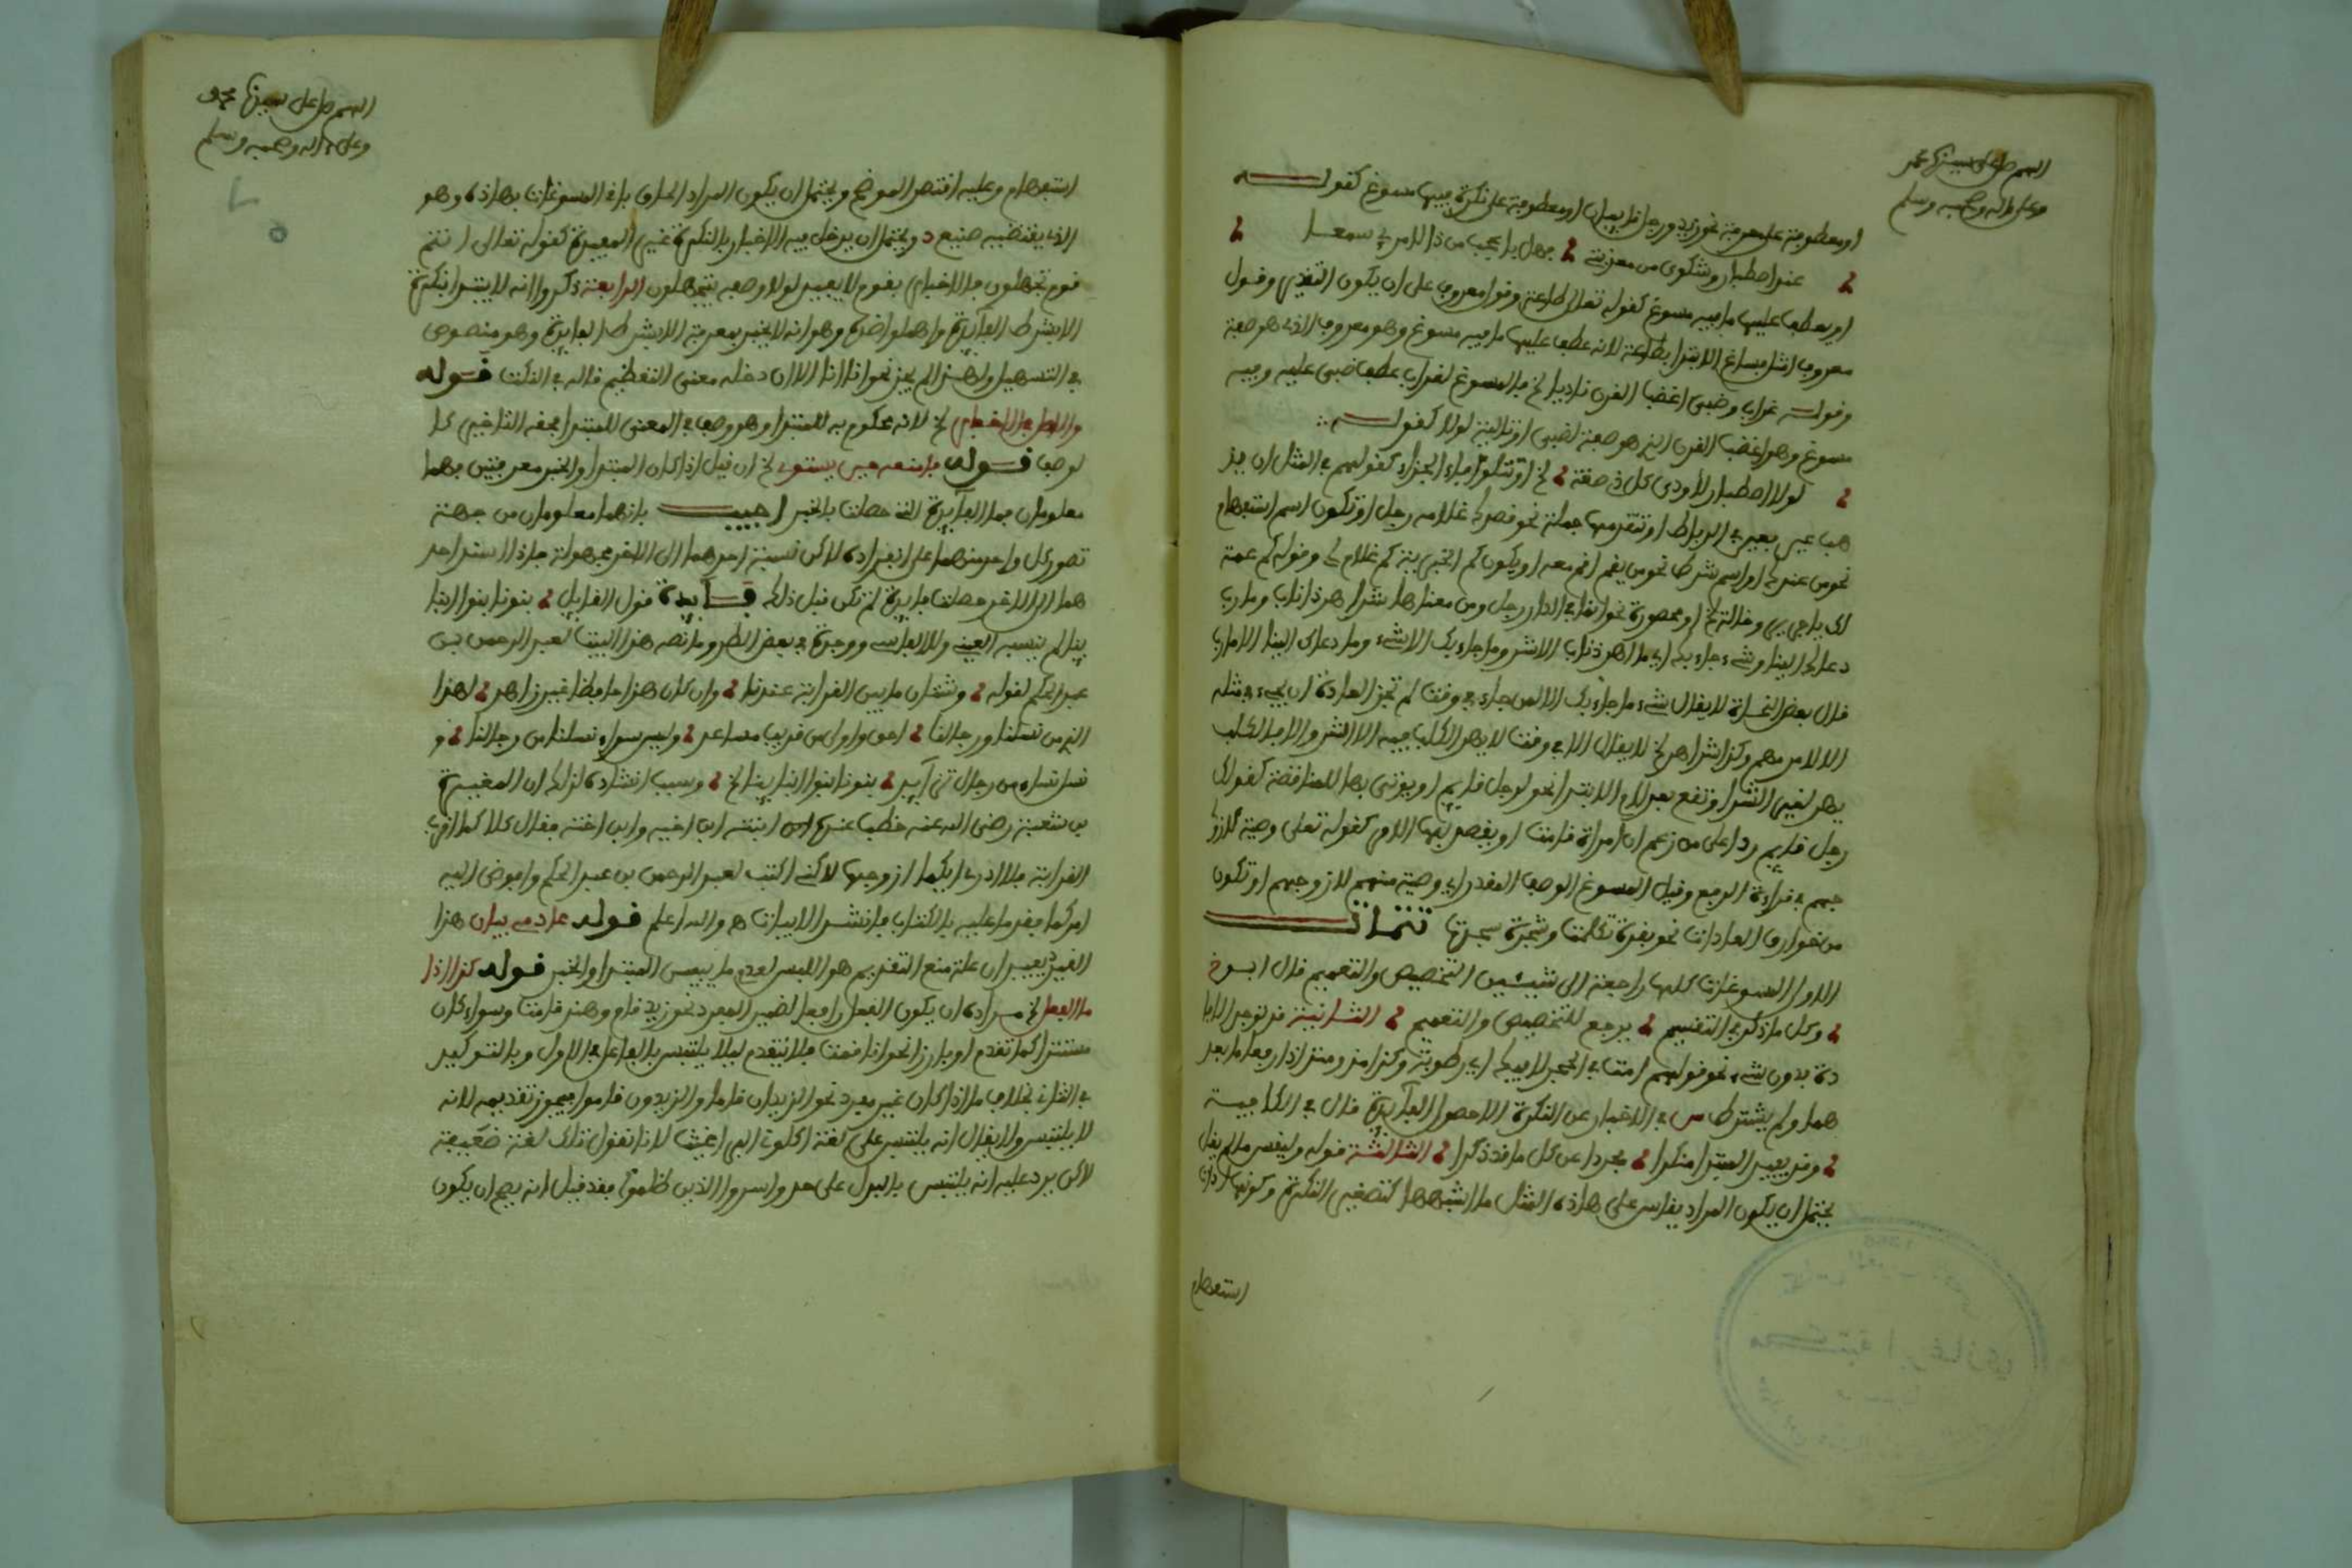 اللهم صل على سيدنا محمد
وعلى ءاله وصحبه وسلم
او معطوفة على معرفة نحو زيد ورجل قايمان او معطوفة على نكرة فيها مسوغ كقولـــه
عند اصطبار وشكوى من معذبتي فهل باعجب من ذا الامرئ سمعـا
او يعطف عليها ما فيه مسوغ كقوله تعالى طاعة وقول معروف على ان يكون التقدير وقول
معروف امثل فساغ الابتدا بطاعة لانه عطف عليها ما فيه مسوغ وهو معروف الذي هو صفة
وقولـه غراب وضبي اغضب القرن ناديا لخ فالمسوغ لغراب عطف ضبي عليه وفيه
مسوغ وهو اغضب القرن الذي هو صفة لضبي او تالية لولا كقولـــه
لولا اصطبار لاودى كل ذي مقة لخ او تتلو فاء الجزاء كقولهم في المثل ان يذ
هب عير فعير في الرباط او تتقدمها جملة نحو قصدك غلامه رجل او تكون اسم استفهام
نحو من عندك او اسم شرط نحو من يقم اقم معه او يكون كم الخبرية كم غلام لي وقوله كم عمة
لك يا جرير وخالة لخ او محصورة نحو انما في الدار رجل ومن معناها شر اهر ذا ناب ومارب
دعاك الينا وشيء جاء بك اي ما اهر ذا ناب الا شر وما جاء بك الا شيء وما دعاك الينا الا مارب
قال بعض النحاة لا يقال شيء ما جاء بك الا لمن جاء في وقت لم تجر العادة ان يجيء في مثله
الا لامر مهم وكذا شر اهر لخ لا يقال الا في وقت لا يهر الكلب فيه الا لشر والا فالكلب
يهر لغير الشر او تقع بعد لام الابتدا نحو لرجل قايم او يوتى بها للمناقضة كقولك
رجل قايم ردا على من زعم ان امراة قامت او يقصد بها الامر كقوله تعالى وصية لازوا
جهم في قراءة الرفع وقيل المسوغ الوصف المقدر اي وصية منهم لازوجهم او تكون
من خوارق العادات نحو بقرة تكلمت وشجرة سجدت تتمات
الاولى المسوغات كلها راجعة الى شيئين التخصيص والتعميم قال ابـو
وكل ما ذكر في التقسيم يرجع للتخصيص والتعميم الثـانية قد توجد الافا
دة بدون شيء نحو قولهم امت في الحجر لا فيك اي رطوبة وكذا مذ ومنذ اذا رفعا ما بعد
هما ولم يشترط س في الاخبار عن النكرة الا حصول الفآيدة قال في الكافيـة
وقد يفيد المبتدا منكرا مجردا عن كل ما قد ذكرا الثـالثة قوله وليقس ما لم يقل
يحتمل ان يكون المراد يقاس على هاذه المثل ما اشبهها كتصغير النكرة وكونها ذات
استفهام
اللهم صل على سيدنا محمد
وعلى ءاله وصحبه وسلم
استفهام وعليه اقتصر الموضح ويحتمل ان يكون المراد الحاق باقي المسوغات بهاذه وهو
الذي يقتضيه صنيعه ويحتمل ان يدخل فيه الاخبار بالنكرة غير المفيدة كقوله تعالى انتم
قوم تجهلون فالاخبار بقوم لا يفيد لولا وصفه بتجهلون الرابعة ذكروا انه لا يبتدا بنكرة
الا بشرط الفآيدة واهملوا ضده وهو انه لا يخبر بمعرفة الا بشرط الفايدة وهو منصوص
في التسهيل ولهذا لم يجز نحو انا انا الا ان دخله معنى التعظيم قاله في النكت قـوله
والاصل في الاخبار لخ لانه محكوم به للمبتدا وهو وصف في المعنى للمبتدا فحقه التاخير كا
لوصف قـوله فامنعه حين يستوي لخ ان قيل اذا كان المبتدا والخبر معرفتين فهما
معلومان فما الفآيدة التي حصلت بالخبر اجيـب بانهما معلومان من جهة
تصور كل واحد منهما على انفراده لاكن نسبة احدهما الى الاخر مجهولة فاذا اسند احد
هما الى الاخر حصلت فايدة لم تكن قبل ذلك فـآيدة قول القايل بنونا بنو ابنا
ينا لم ينسبه العيني ولا الفاسي ووجدت في بعض الطرر ما نصه هذا البيت لعبد الرحمن بن
عبد الحكم لقوله وشتان ما بين القرابة عندنا وان كان هذا حافظا غير زاهد لهذا
الذي من نسلنا ورجالنا احق واولى من قريب مساعد وليس سواء نسلنا من رجالنا و
نسل نساء من رجال اباعد بنونا بنو ابناينا لخ وسبب انشاده لذلك ان المغيرة
بن شعبة رضي الله عنه خطب عنده ابنته ابن اخيه وابن اخته فقال كلاكما قريب
القرابة فلا ادري ايكما ازوجها لاكني اكتب لعبد الرحمن بن عبد الحكم وافوض اليه
امركما فقدما عليه بالكتاب فانشد الابيات ه والله اعلم قـوله عادمي بيان هذا
القيد يفيد ان علة منع التقديم هو اللبس لعدم ما يبين المبتدا والخبر قـوله كذا اذا
ما الفعل لخ مراده ان يكون الفعل رافعا لضمير المفرد نحو زيد قام وهند قامت وسواء كان
مستترا كما تقدم او بارزا نحو انا قمت فلا يتقدم ليلا يلتبس بالفاعل في الاول وبالتوكيد
في الثاني بخلاف ما اذا كان غير مفرد نحو الزيدان قاما والزيدون قاموا فيجوز تقديمه لانه
لا يلتبس ولا يقال انه يلتبس على لغة اكلوني البراغيث لانا نقول تلك لغة ضعيفة
لاكن يرد عليه انه يلتبس بالبدل على حد واسروا الذين ظلموا فقد قيل انه يصح ان يكون